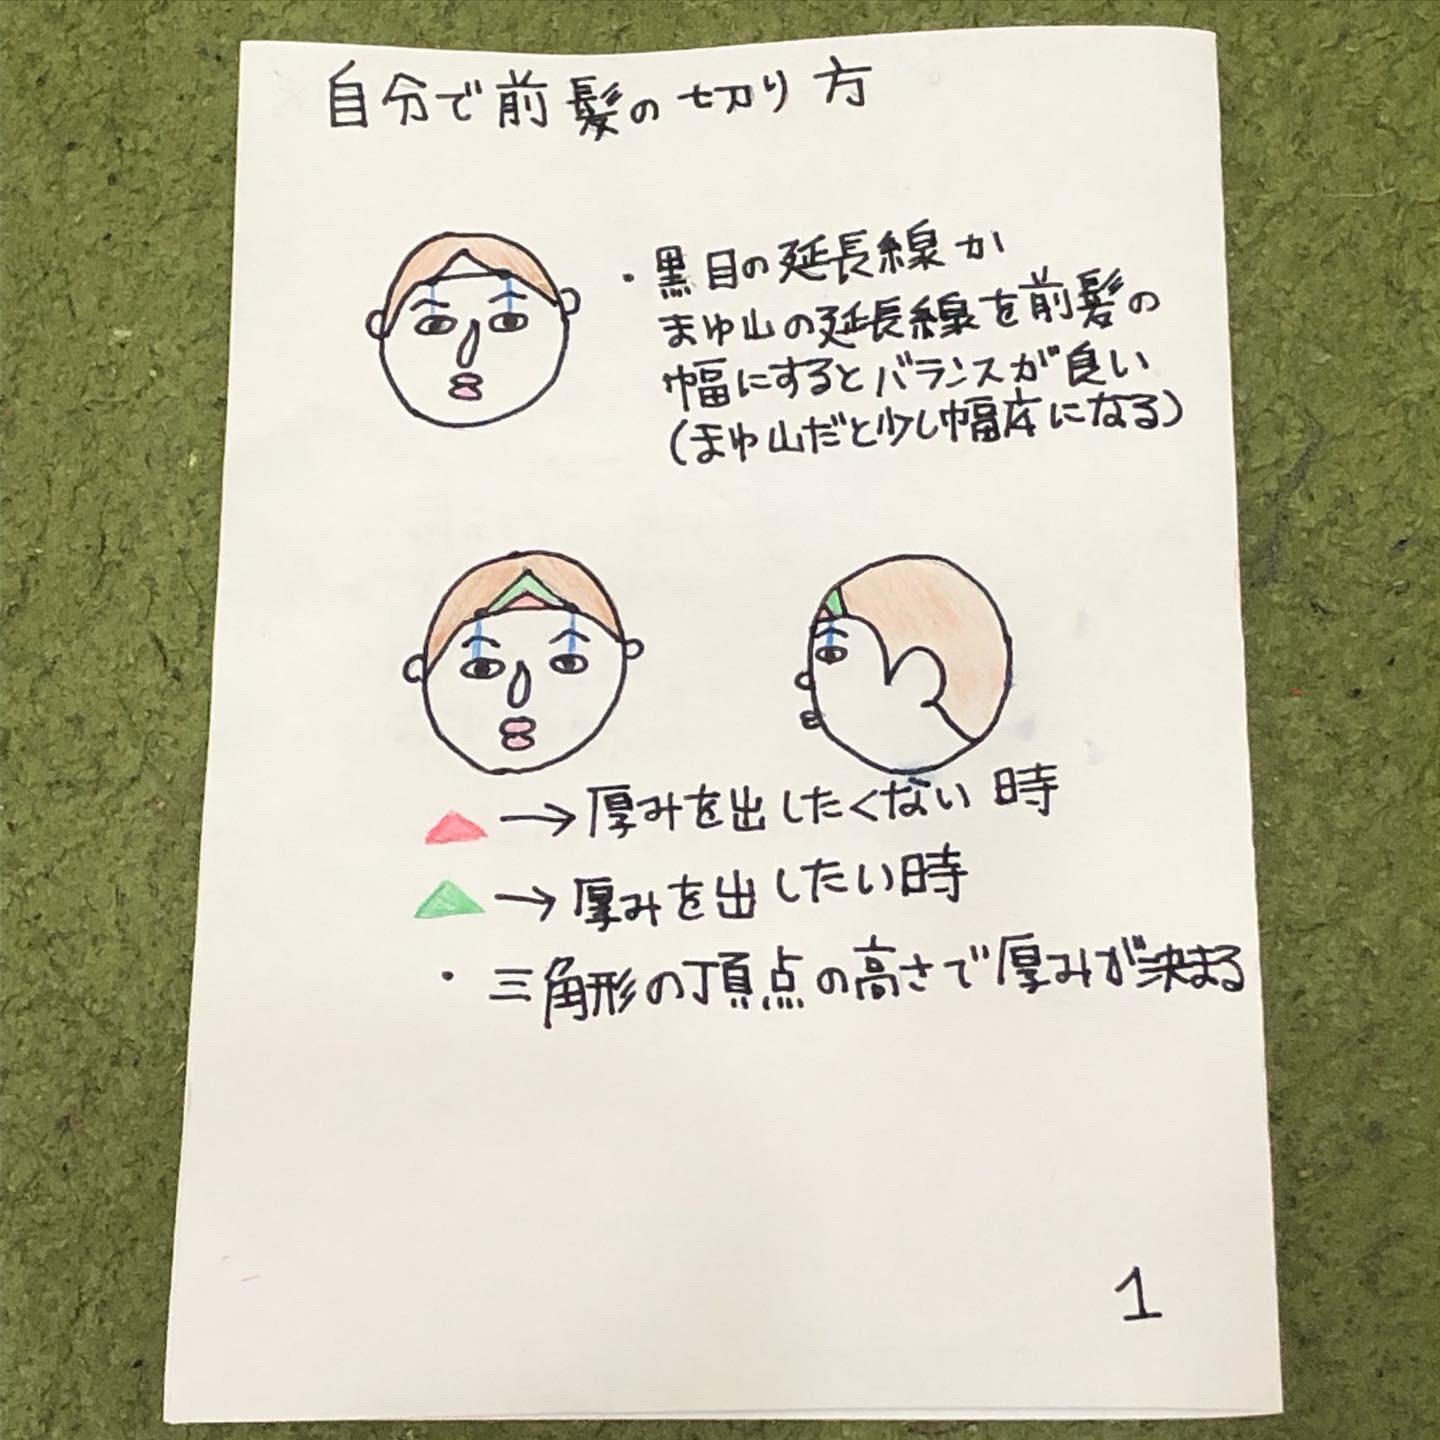 自分で前髪の切り方
・黒目の延長線か
まゆ山の延長線を前髪の
幅にするとバランスが良い
(まゆ山だと少し幅広になる)
→厚みを出したくない時
→厚みを出したい時
・三角形の頂点の高さで厚みが決まる
1